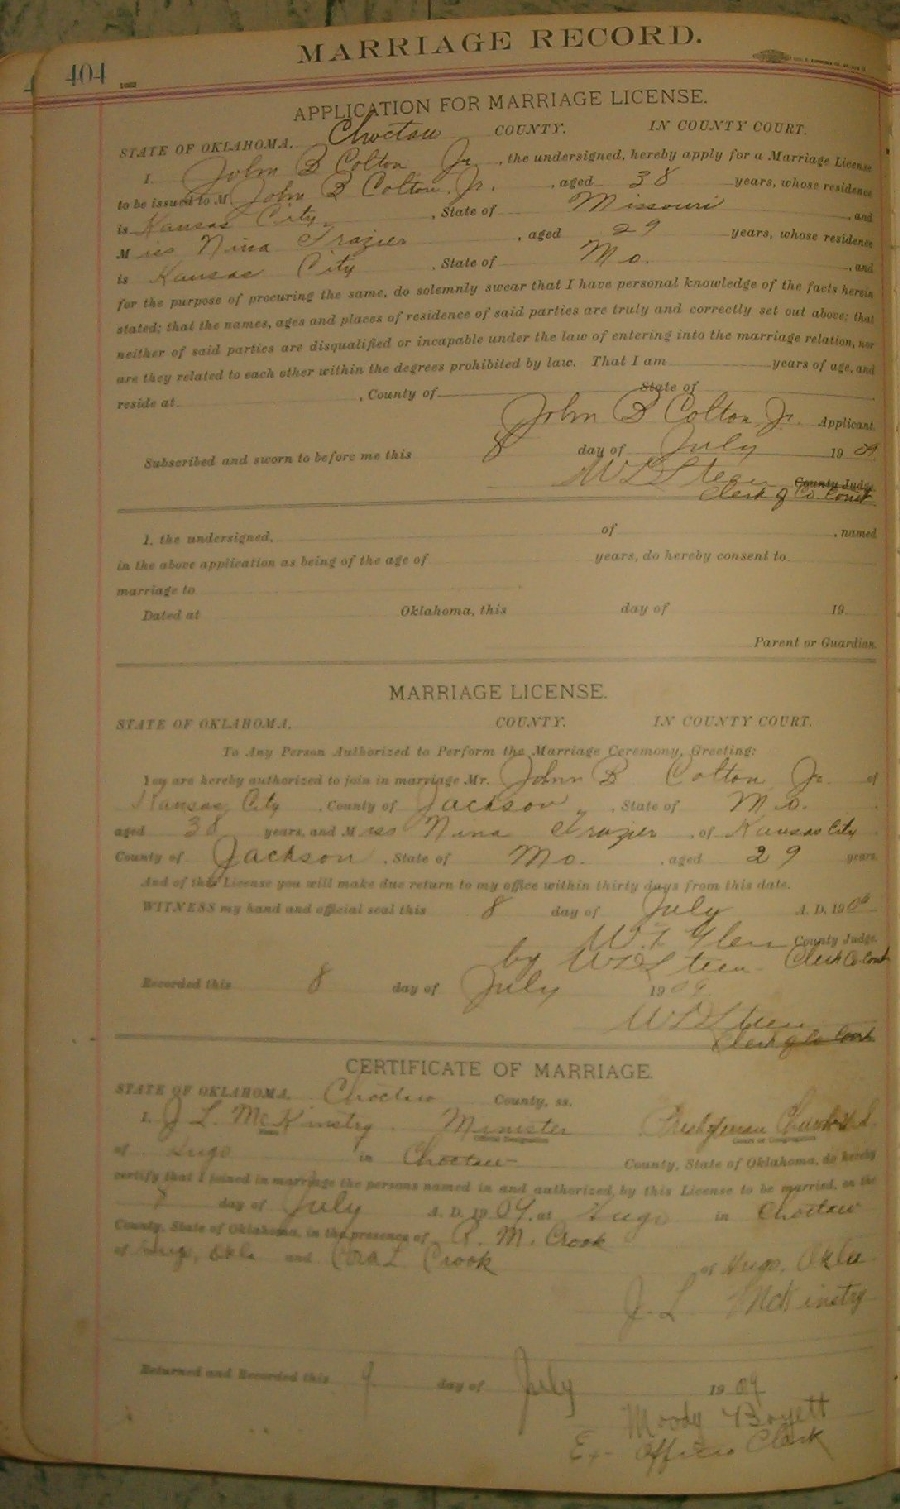 MARRIAGE RECORD.
404
APPLICATION FOR MARRIAGE LICENSE.
STATE OF OKLAHOMA, Choctaw COUNTY. IN COUNTY COURT.
I John B Colton Jr., the undersigned, hereby apply for a Marriage License
to be issued to M John B Colton Jr., aged 38 years, whose residence
is Kansas City, State of Missouri, and
Miss Nina Frazier, aged 29 years, whose residence
is Kansas City, State of Mo., and
for the purpose of procuring the same, do solemnly swear that I have personal knowledge of the facts herein
stated; that the names, ages and places of residence of said parties are truly and correctly set out above; that
neither of said parties are disqualified or incapable under the law of entering into the marriage relation, nor
are they related to each other within the degrees prohibited by law. That I am years of age, and
reside at , County of State of
John B Colton Jr. Applicant.
Subscribed and sworn to before me this 8 day of July 1909
W L Steen County Judge.
Clerk of Co Court
I, the undersigned, of , named
in the above application as being of the age of years, do hereby consent to
marriage to
Dated at Oklahoma, this day of 19
Parent or Guardian.
MARRIAGE LICENSE.
STATE OF OKLAHOMA, COUNTY. IN COUNTY COURT.
To Any Person Authorized to Perform the Marriage Ceremony, Greeting:
You are hereby authorized to join in marriage Mr. John B Colton Jr. of
Kansas City, County of Jackson, State of Mo.
aged 38 years, and Miss Nina Frazier, of Kansas City
County of Jackson, State of Mo., aged 29 years.
And of this License you will make due return to my office within thirty days from this date.
WITNESS my hand and official seal this 8 day of July A. D. 1909
W. T. Glenn County Judge.
by W L Steen Clerk Co Court
Recorded this 8 day of July 1909
W L Steen
Clerk of Co Court
CERTIFICATE OF MARRIAGE
STATE OF OKLAHOMA, Choctaw County, ss.
I, J L McKinstry Minister Presbyterian Church
Name Official Designation Court or Congregation
of Hugo in Choctaw County, State of Oklahoma, do hereby
certify that I joined in marriage the persons named in and authorized by this License to be married, on the
7 day of July A. D. 1909, at Hugo in Choctaw
County, State of Oklahoma, in the presence of R. M. Crook
of Hugo, Okla and Cora L Crook of Hugo, Okla
J. L McKinstry
Returned and Recorded this 9 day of July 1909
Moody Boyett
Ex- Officio Clerk